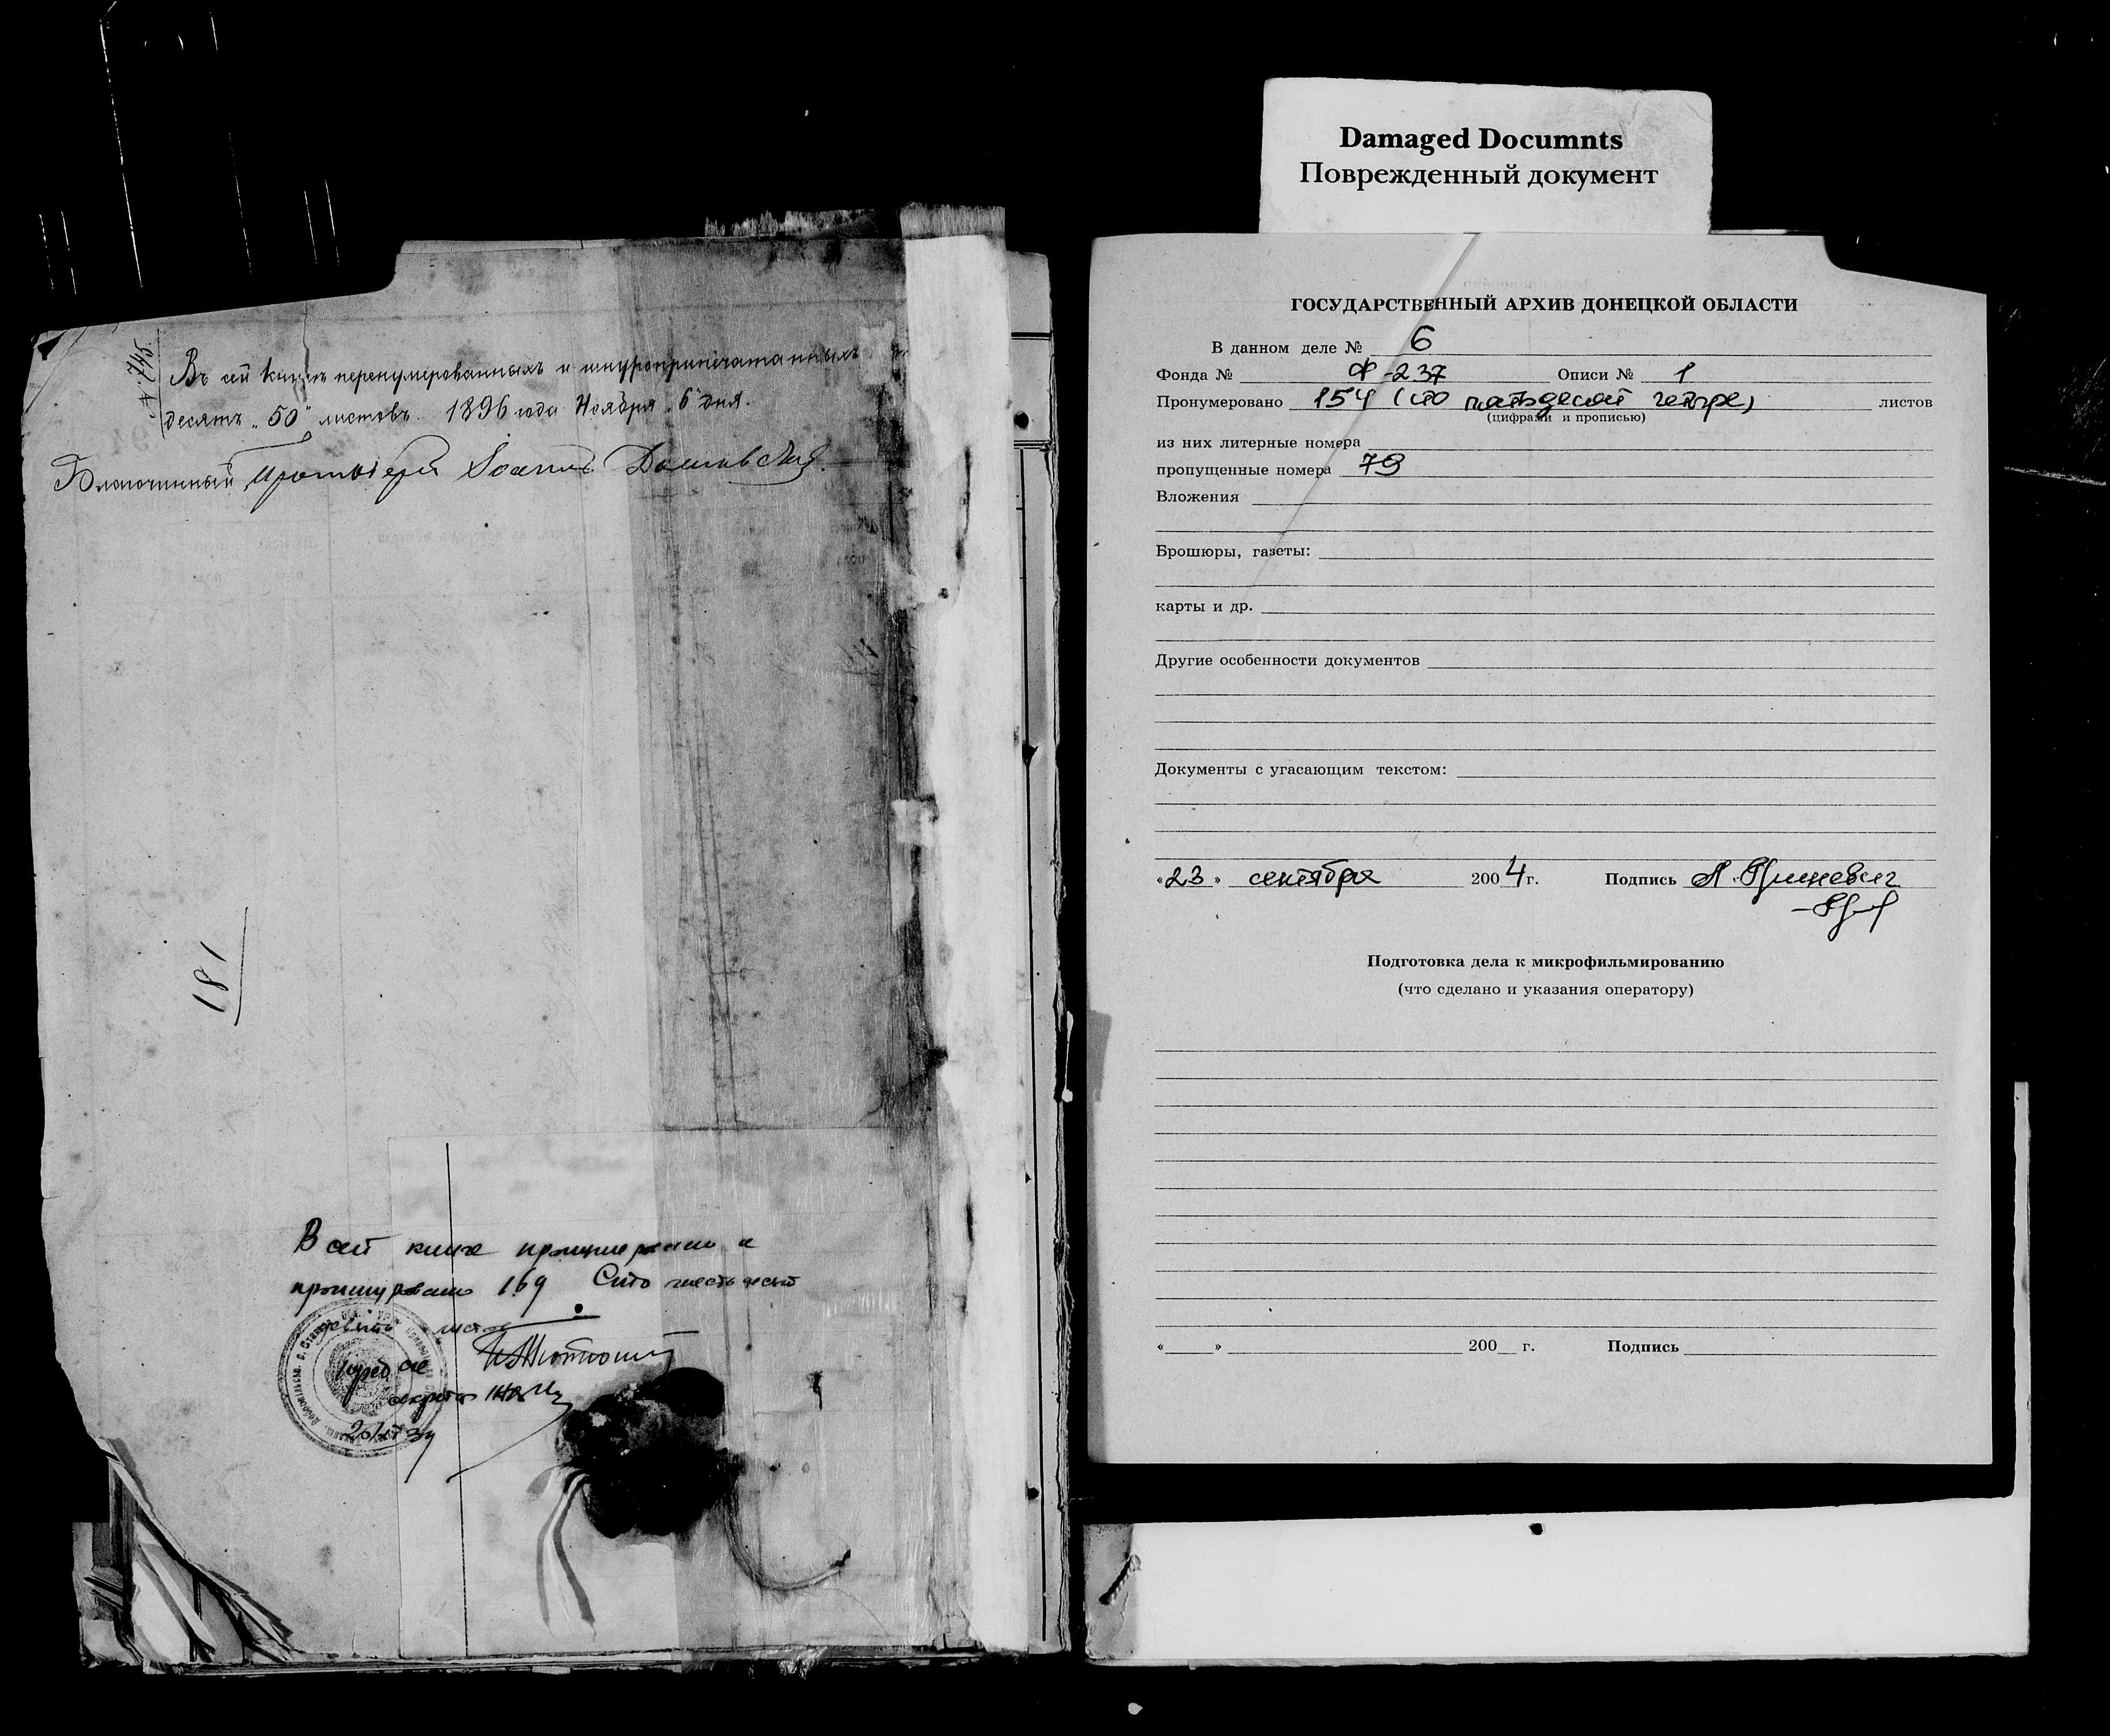 № 745.
Въ сей книгѣ перенумерованныхъ и шнуроприпечатанныхъ
десять „50" листовъ. 1896 года Ноября „6" дня.
Благочинный, Протоіерей Іоаннъ
181
В сей книге пронумеровано и
прошнуровано 169 Сто шестьдесят
девять листов
Пред
секретарь
Damaged Documnts
Поврежденный документ
ГОСУДАРСТВЕННЫЙ АРХИВ ДОНЕЦКОЙ ОБЛАСТИ
В данном деле № 6
Фонда № Ф-237 Описи № 1
Пронумеровано 154 (сто пятьдесят четыре) листов
(цифрами и прописью)
из них литерные номера
пропущенные номера 79
Вложения
Брошюры, газеты:
карты и др.
Другие особенности документов
Документы с угасающим текстом:
«23» сентября 2004 г. Подпись Л. Гриневич
Подготовка дела к микрофильмированию
(что сделано и указания оператору)
« » 200 г. Подпись